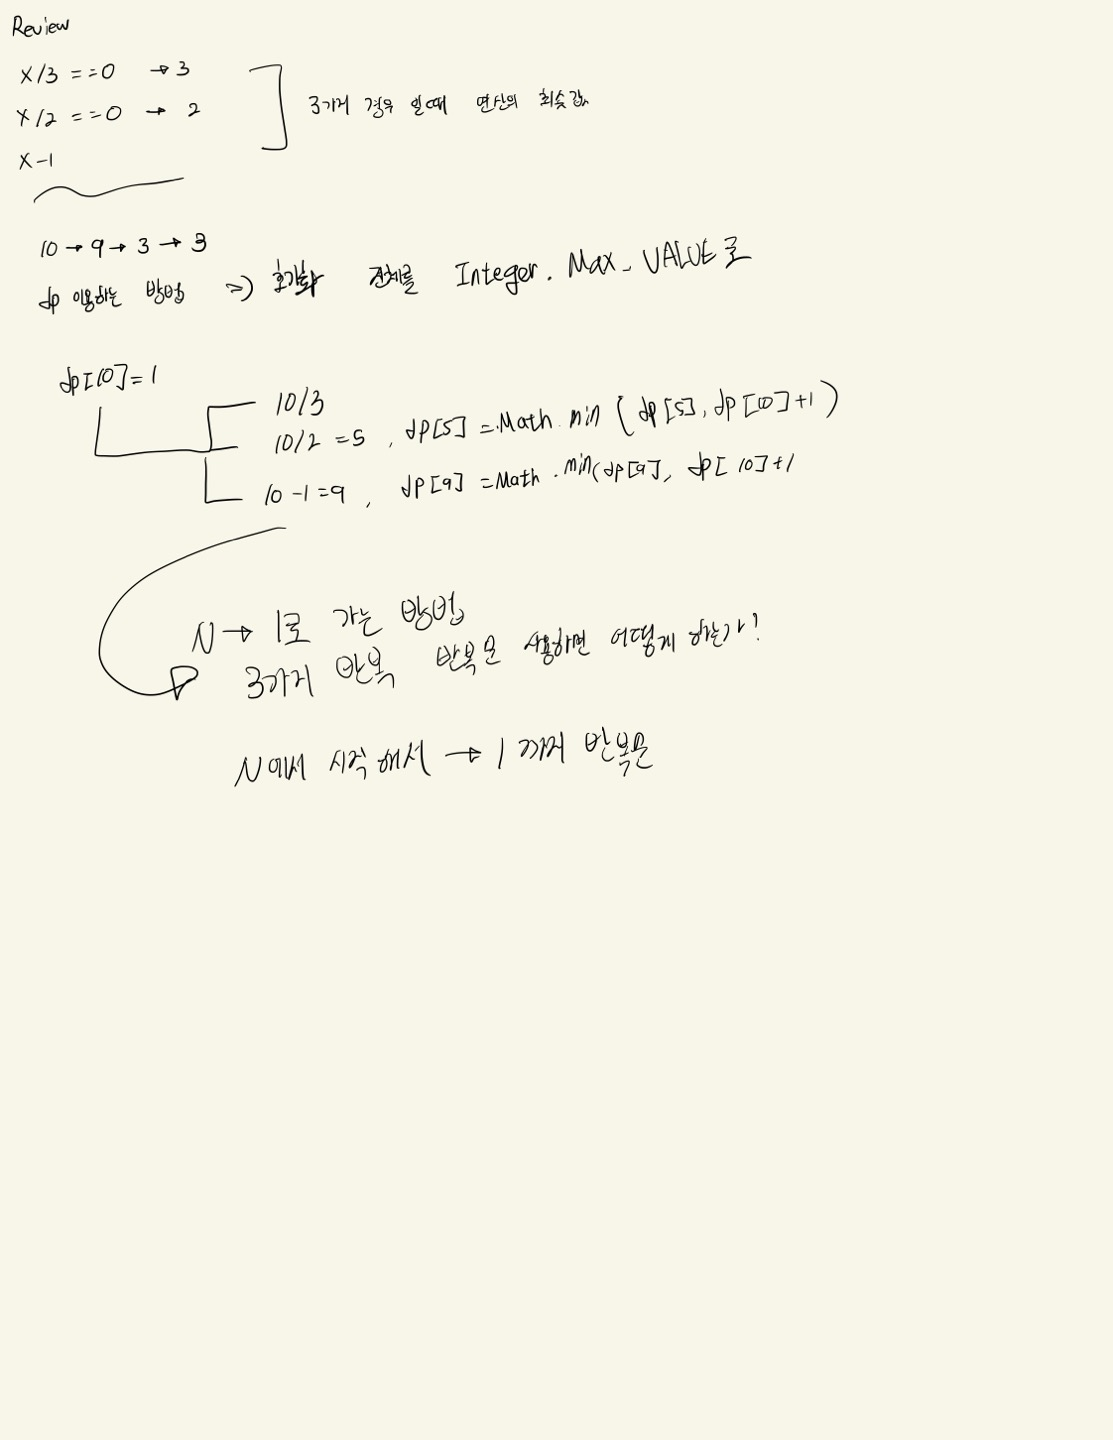 Review
X/3 ==0 → 3
X/2 ==0 → 2
3가지 경우 일때 연산의 최솟값
X-1
10 → 9 → 3 → 3
dp 이용하는 방법 => 초기화 전체를 Integer. Max_VALUE로
dp[10]=1
10/3
10/2 =5 , dp[5] =Math.min (dp[5], dp[10]+1)
10-1=9 , dp[9] =Math.min(dp[9], dp[10]+1
N → 1로 가는 방법
3가지 반복 반복문 사용하면 어떻게 하는가?
N에서 시작해서 → 1 까지 반복문